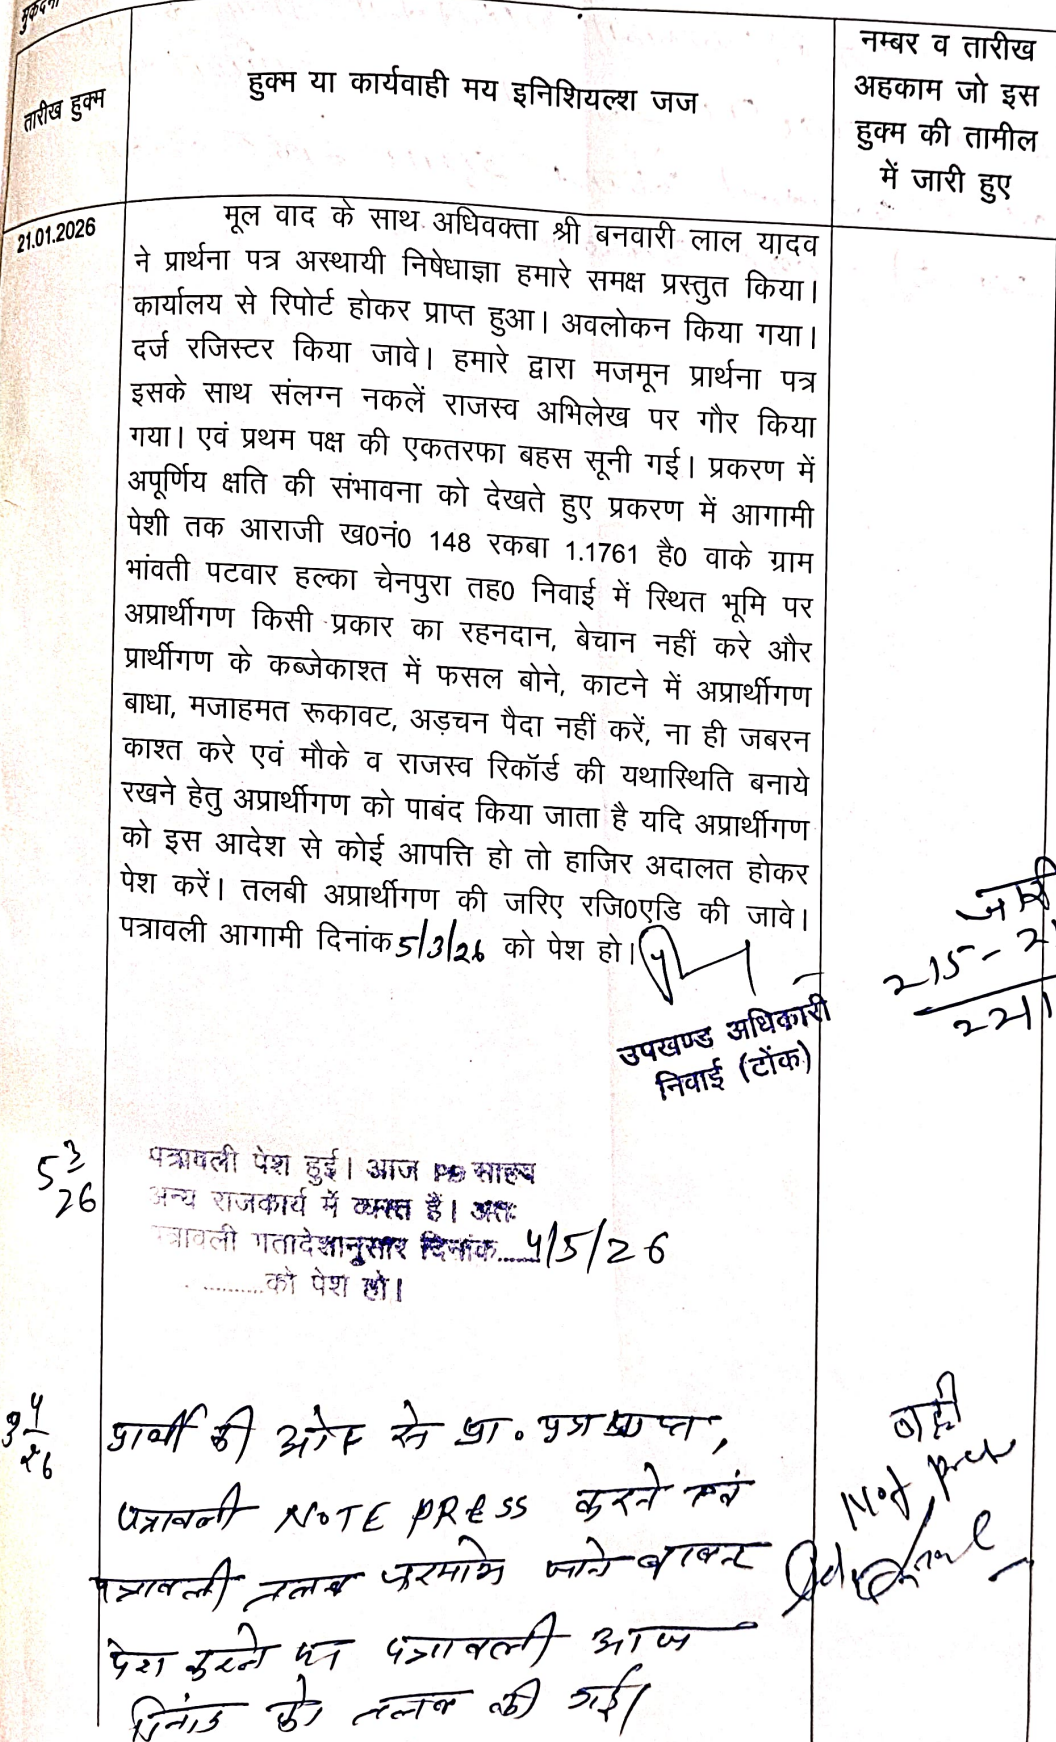 तारीख हुक्म
हुक्म या कार्यवाही मय इनिशियल्श जज
नम्बर व तारीख
अहकाम जो इस
हुक्म की तामील
में जारी हुए
21.01.2026
मूल वाद के साथ अधिवक्ता श्री बनवारी लाल यादव
ने प्रार्थना पत्र अस्थायी निषेधाज्ञा हमारे समक्ष प्रस्तुत किया।
कार्यालय से रिपोर्ट होकर प्राप्त हुआ। अवलोकन किया गया।
दर्ज रजिस्टर किया जावे। हमारे द्वारा मजमून प्रार्थना पत्र
इसके साथ संलग्न नकलें राजस्व अभिलेख पर गौर किया
गया। एवं प्रथम पक्ष की एकतरफा बहस सूनी गई। प्रकरण में
अपूर्णिय क्षति की संभावना को देखते हुए प्रकरण में आगामी
पेशी तक आराजी ख0नं0 148 रकबा 1.1761 है0 वाके ग्राम
भांवती पटवार हल्का चेनपुरा तह0 निवाई में स्थित भूमि पर
अप्रार्थीगण किसी प्रकार का रहनदान, बेचान नहीं करे और
प्रार्थीगण के कब्जेकाश्त में फसल बोने, काटने में अप्रार्थीगण
बाधा, मजाहमत रूकावट, अड़चन पैदा नहीं करें, ना ही जबरन
काश्त करे एवं मौके व राजस्व रिकॉर्ड की यथास्थिति बनाये
रखने हेतु अप्रार्थीगण को पाबंद किया जाता है यदि अप्रार्थीगण
को इस आदेश से कोई आपत्ति हो तो हाजिर अदालत होकर
पेश करें। तलबी अप्रार्थीगण की जरिए रजि0एडि की जावे।
पत्रावली आगामी दिनांक 5/3/26 को पेश हो।
जारी
215-2
221
उपखण्ड अधिकारी
निवाई (टोंक)
5 3/26
पत्रावली पेश हुई। आज PO साहब
अन्य राजकार्य में व्यस्त हैं। अतः
पत्रावली गतादेशानुसार दिनांक......4/5/26
...........को पेश हो।
प्रार्थी की ओर से प्रा. पत्र प्राप्त,
पत्रावली NOTE PRESS करने एवं
पत्रावली तलब फरमाये जाने बाबत
पेश करने पर पत्रावली आज
दिनांक को तलब की गई।
Not press